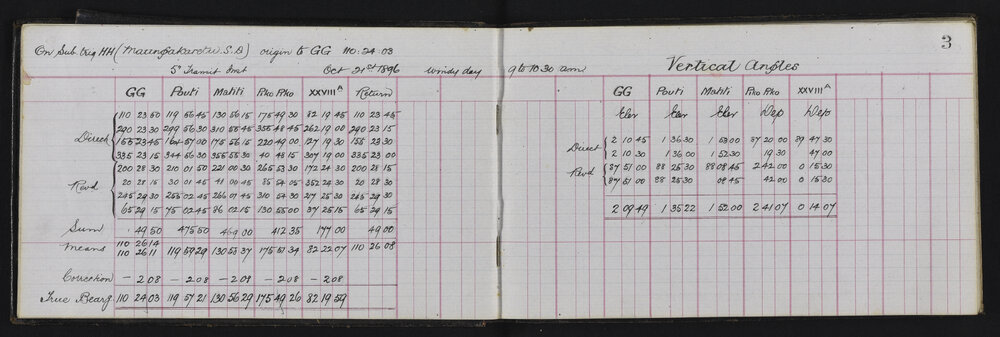 3
On Sub. Trig HH (Maungakaretu S.D) origin to GG 110:24:03
5" Transit Inst Oct 21st 1896 windy day 9 to 10 30 am
GG Pouti Mahiti Rko Rko XXVIII A Return
110 23 50 119 56 45 130 56 15 175 49 30 82 19 45 110 23 45
290 23 30 299 56 30 310 55 45 355 48 45 262 19 00 290 23 15
Direct 155 23 45 164 57 00 175 56 15 220 49 00 127 19 30 155 23 30
335 23 15 344 56 30 355 55 30 40 48 15 307 19 00 335 23 00
200 28 30 210 01 50 221 00 30 265 53 30 172 24 30 200 28 15
Revd 20 28 15 30 01 45 41 00 45 85 54 05 352 24 30 20 28 30
245 29 30 255 02 45 266 01 45 310 54 30 217 25 30 245 29 30
65 29 15 75 02 45 86 02 15 130 55 00 37 25 15 65 29 15
Sum 49 50 475 50 469 00 412 35 177 00 49 00
Means 110 26 14
110 26 11 119 59 29 130 58 37 175 51 34 82 22 07 110 26 08
Correction – 2 08 – 2 08 – 2 08 – 2 08 – 2 08
True Bearg 110 24 03 119 57 21 130 56 29 175 49 26 82 19 59
Vertical Angles
GG Pouti Mahiti Rko Rko XXVIII A
Elev Elev Elev Dep Dep
Direct 2 10 45 1 36 30 1 53 00 87 20 00 89 47 30
2 10 30 1 36 00 1 52 30 19 30 47 00
Revd 87 51 00 88 25 30 88 08 45 2 42 00 0 15 30
87 51 00 88 25 30 08 45 42 00 0 15 30
2 09 49 1 35 22 1 52 00 2 41 07 0 14 07